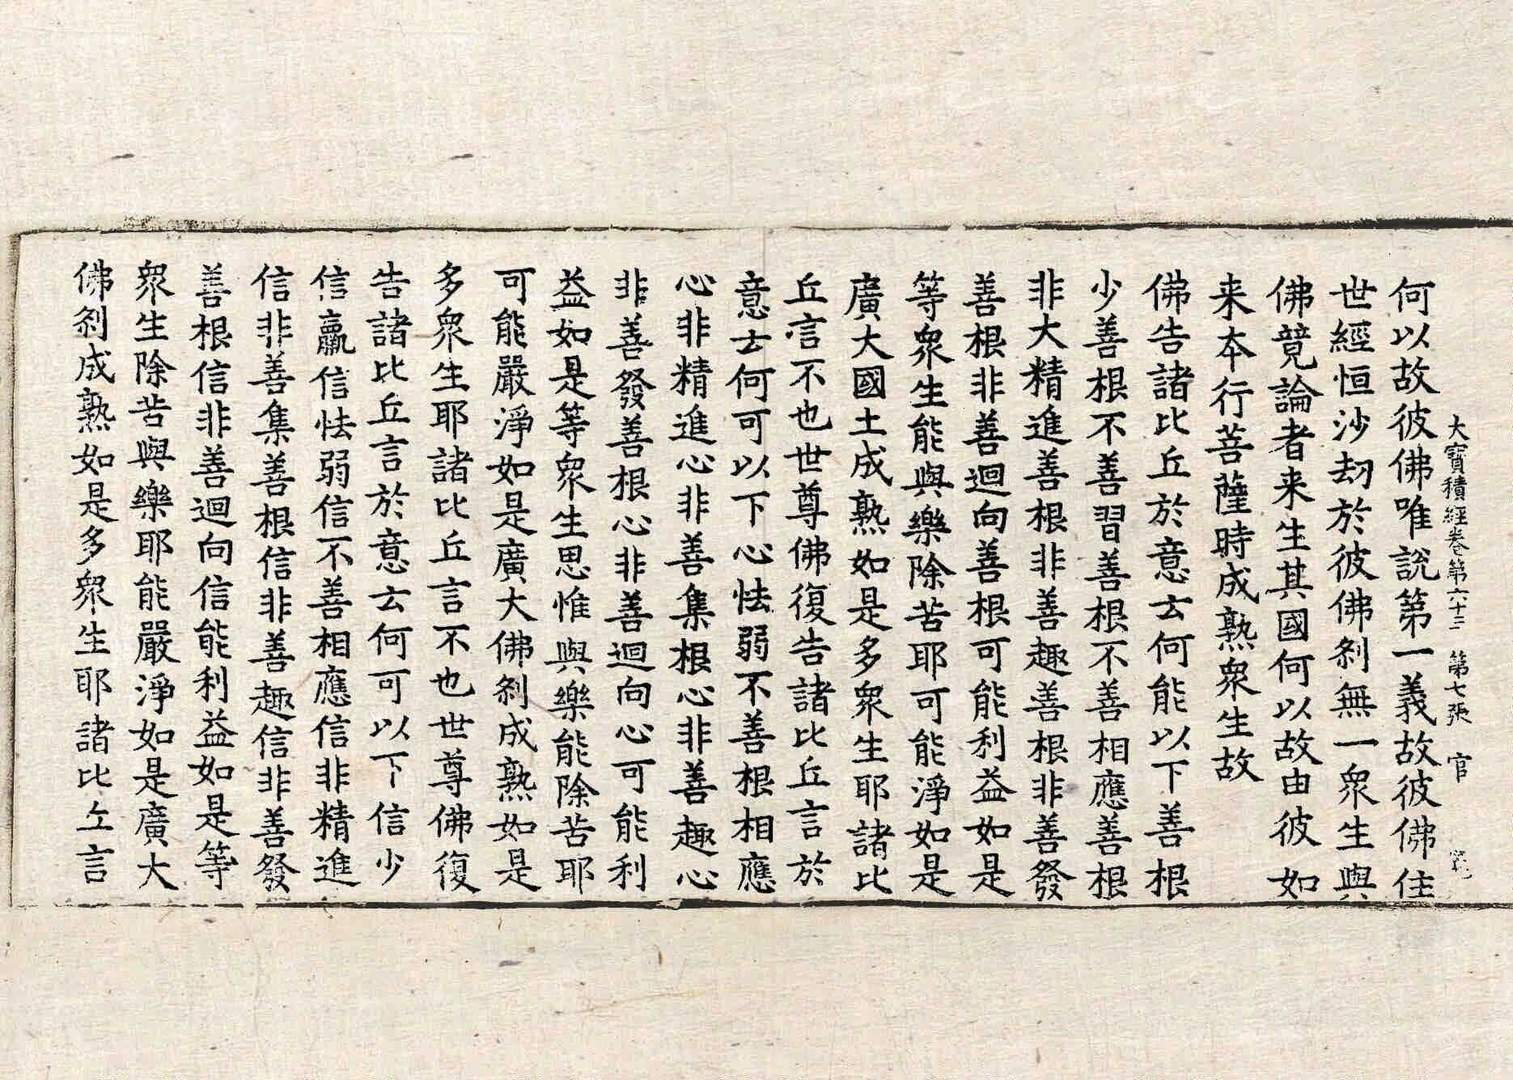 大寶積經卷第六十三 第七張 官
何以故彼佛唯說第一義故彼佛住
世經恒沙劫於彼佛刹無一衆生與
佛竟論者来生其國何以故由彼如
来夲行菩薩時成熟衆生故
佛告諸比丘於意云何能以下善根
少善根不善習善根不善相應善根
非大精進善根非善趣善根非善發
善根非善迴向善根可能利益如是
等衆生能與樂除苦耶可能淨如是
廣大國土成熟如是多衆生耶諸比
丘言不也世尊佛復告諸比丘言於
意云何可以下心怯弱不善根相應
心非精進心非善集根心非善趣心
非善發善根心非善迴向心可能利
益如是等衆生思惟與樂能除苦耶
可能嚴淨如是廣大佛刹成熟如是
多衆生耶諸比丘言不也世尊佛復
告諸比丘言於意云何可以下信少
信羸信怯弱信不善相應信非精進
信非善集善根信非善趣信非善發
善根信非善迴向信能利益如是等
衆生除苦與樂耶能嚴淨如是廣大
佛刹成熟如是多衆生耶諸比丘言